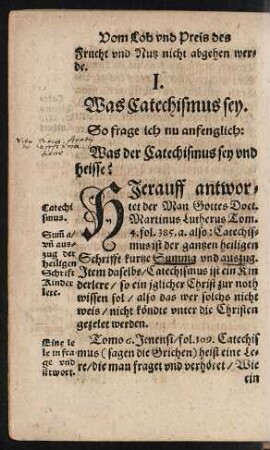 Vom Lob vnd Preis des
Frucht vnd Nutz nicht abgehen wer-
de.
I.
Was Catechismus sey.
So frage ich nu anfenglich:
Was der Catechismus sey vnd
heisse?
HJerauff antwor-
tet der Man Gottes Doct.
Martinus Lutherus Tom.
4. fol. 385. a. also: Catechis-
mus ist der gantzen heiligen
Schrifft kurtze Summa vnd auszug.
Item daselbs/ Catechismus ist ein Kin-
derlere/ so ein jglicher Christ zur noth
wissen sol/ also das wer solchs nicht
weis/ nicht köndte vnter die Christen
gezelet werden.
Tomo 6. Jenensi/ fol. 109. Catechis
mus (sagen die Grichen) heist eine Le-
re/ die man fraget vnd verhöret/ Wie
ein
Catechi
smus.
Sum̄a/
vn̄ aus-
zug der
heiligen
Schrifft
Kinder
lere.
Eine le
re in fra
ge vnd
antwort.